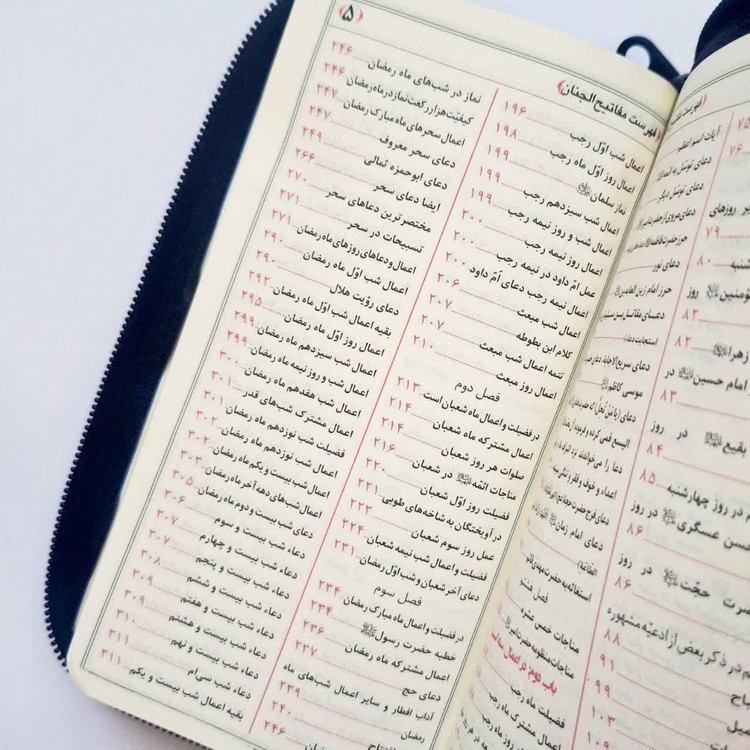 فهرست مفاتیح
آیات اسم اعظم
دعای توسّل به ائمه
دعای توسّل دیگر
دعای نور
حرز امام زین العابدین
دعای سریع الاجابة
موسی کاظم
دعای امام زمان
فصل هشتم
مناجات خمس عشره
باب دوم در اعمال
فضیلت ماه رجب
اعمال مشترک ماه رجب
۷۵
۷۶
روزهای
۷۹
۸۰
روز
۸۲
۸۲
امام حسین در
۸۳
بقیع در روز
۸۴
در روز چهارشنبه
۸۵
عسگری در روز
۸۶
حجّت در روز
۸۶
در ذکر بعض از ادعیّه مشهوره
۸۸
۹۱
۹۹
۱۰۳
۱۰۹
﴿۵﴾
فهرست مفاتیح‌الجنان
اعمال شب اوّل رجب ۱۹۶
اعمال روز اوّل ماه رجب ۱۹۸
نماز سلمان ۱۹۹
اعمال شب سیزدهم رجب ۱۹۹
اعمال شب و روز نیمه رجب ۱۹۹
اعمال روز نیمه رجب ۲۰۰
عمل امّ داود در نیمه رجب ۲۰۰
اعمال نیمه رجب دعای اُمّ داود ۲۰۰
اعمال شب مبعث ۲۰۶
کلام ابن بطوطه ۲۰۷
تتمه اعمال شب مبعث ۲۰۷
اعمال روز مبعث ۲۱۰
فصل دوم
در فضیلت و اعمال ماه شعبان است ۲۱۳
اعمال مشترکه ماه شعبان ۲۱۴
صلوات هر روز شعبان ۲۱۴
مناجات ائمّه در شعبان ۲۱۶
فضیلت روز اوّل شعبان ۲۲۰
در آویختگان به شاخه‌های طوبی ۲۲۱
عمل روز سوم شعبان ۲۲۳
فضیلت و اعمال شب نیمه شعبان ۲۲۴
دعای آخر شعبان و شب اوّل رمضان ۲۳۱
فصل سوم
در فضیلت و اعمال ماه مبارک رمضان ۲۳۴
خطبه حضرت رسول ۲۳۴
اعمال مشترکه ماه رمضان ۲۳۶
دعای حج ۲۳۷
آداب افطار و سایر اعمال شب‌های ماه
رمضان ۲۳۹
۲۴۰
۲۴۶
نماز در شب‌های ماه رمضان ۲۴۶
کیفیّت هزار رکعت نماز در ماه رمضان ۲۴۶
اعمال سحرهای ماه مبارک رمضان ۲۴۷
دعای سحر معروف ۲۴۷
دعای ابوحمزه ثمالی ۲۴۹
ایضا دعای سحر ۲۶۶
مختصرترین دعاهای سحر ۲۷۰
تسبیحات در سحر ۲۷۱
اعمال و دعاهای روزهای ماه رمضان ۲۷۱
اعمال شب اوّل ماه رمضان ۲۹۰
دعای رؤیت هلال ۲۹۰
بقیه اعمال شب اوّل ماه رمضان ۲۹۲
اعمال روز اوّل ماه رمضان ۲۹۵
اعمال شب سیزدهم ماه رمضان ۲۹۹
اعمال شب و روز نیمه ماه رمضان ۲۹۹
اعمال شب هفدهم ماه رمضان ۳۰۰
اعمال مشترک شب‌های قدر ۳۰۱
فضیلت شب نوزدهم ماه رمضان ۳۰۱
اعمال شب نوزدهم ماه رمضان ۳۰۲
اعمال شب بیست و یکم ماه رمضان ۳۰۲
اعمال شب‌های دهه آخر ماه رمضان ۳۰۳
دعای شب بیست و دوم ماه رمضان ۳۰۵
دعاء شب بیست و سوم ۳۰۶
دعاء شب بیست و چهارم ۳۰۷
دعاء شب بیست و پنجم ۳۰۷
دعاء شب بیست و ششم ۳۰۸
دعاء شب بیست و هفتم ۳۰۹
دعاء شب بیست و هشتم ۳۰۹
دعاء شب بیست و نهم ۳۱۰
دعاء شب سی‌ام ۳۱۱
بقیه اعمال شب بیست و یکم ۳۱۱